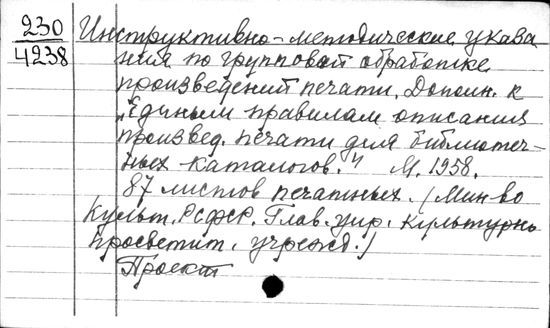 230
4238
Инструктивно-методические указа
ния по групповой обработке
произведений печати. Дополн. к
„Единым правилам описания
произвед. печати для библиотеч-
ных каталогов." М. 1958.
87 листов печатных. /Мин-во
культ. РСФСР. Глав. упр. культурно
просветит. учрежд./
Проект